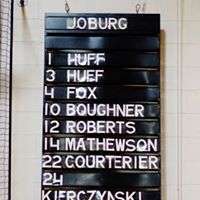 JOBURG
1 HUFF
3 HUEF
4 FOX
10 BOUGHNER
12 ROBERTS
14 MATHEWSON
22 COURTERIER
24
KIERCZYNSKI